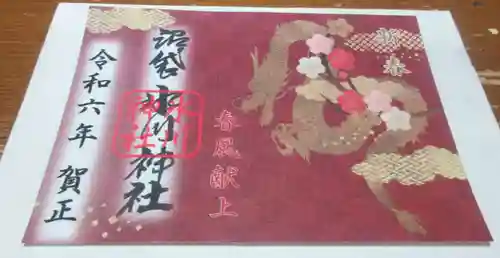 新春
春風献上
沼袋氷川神社
令和六年 賀正